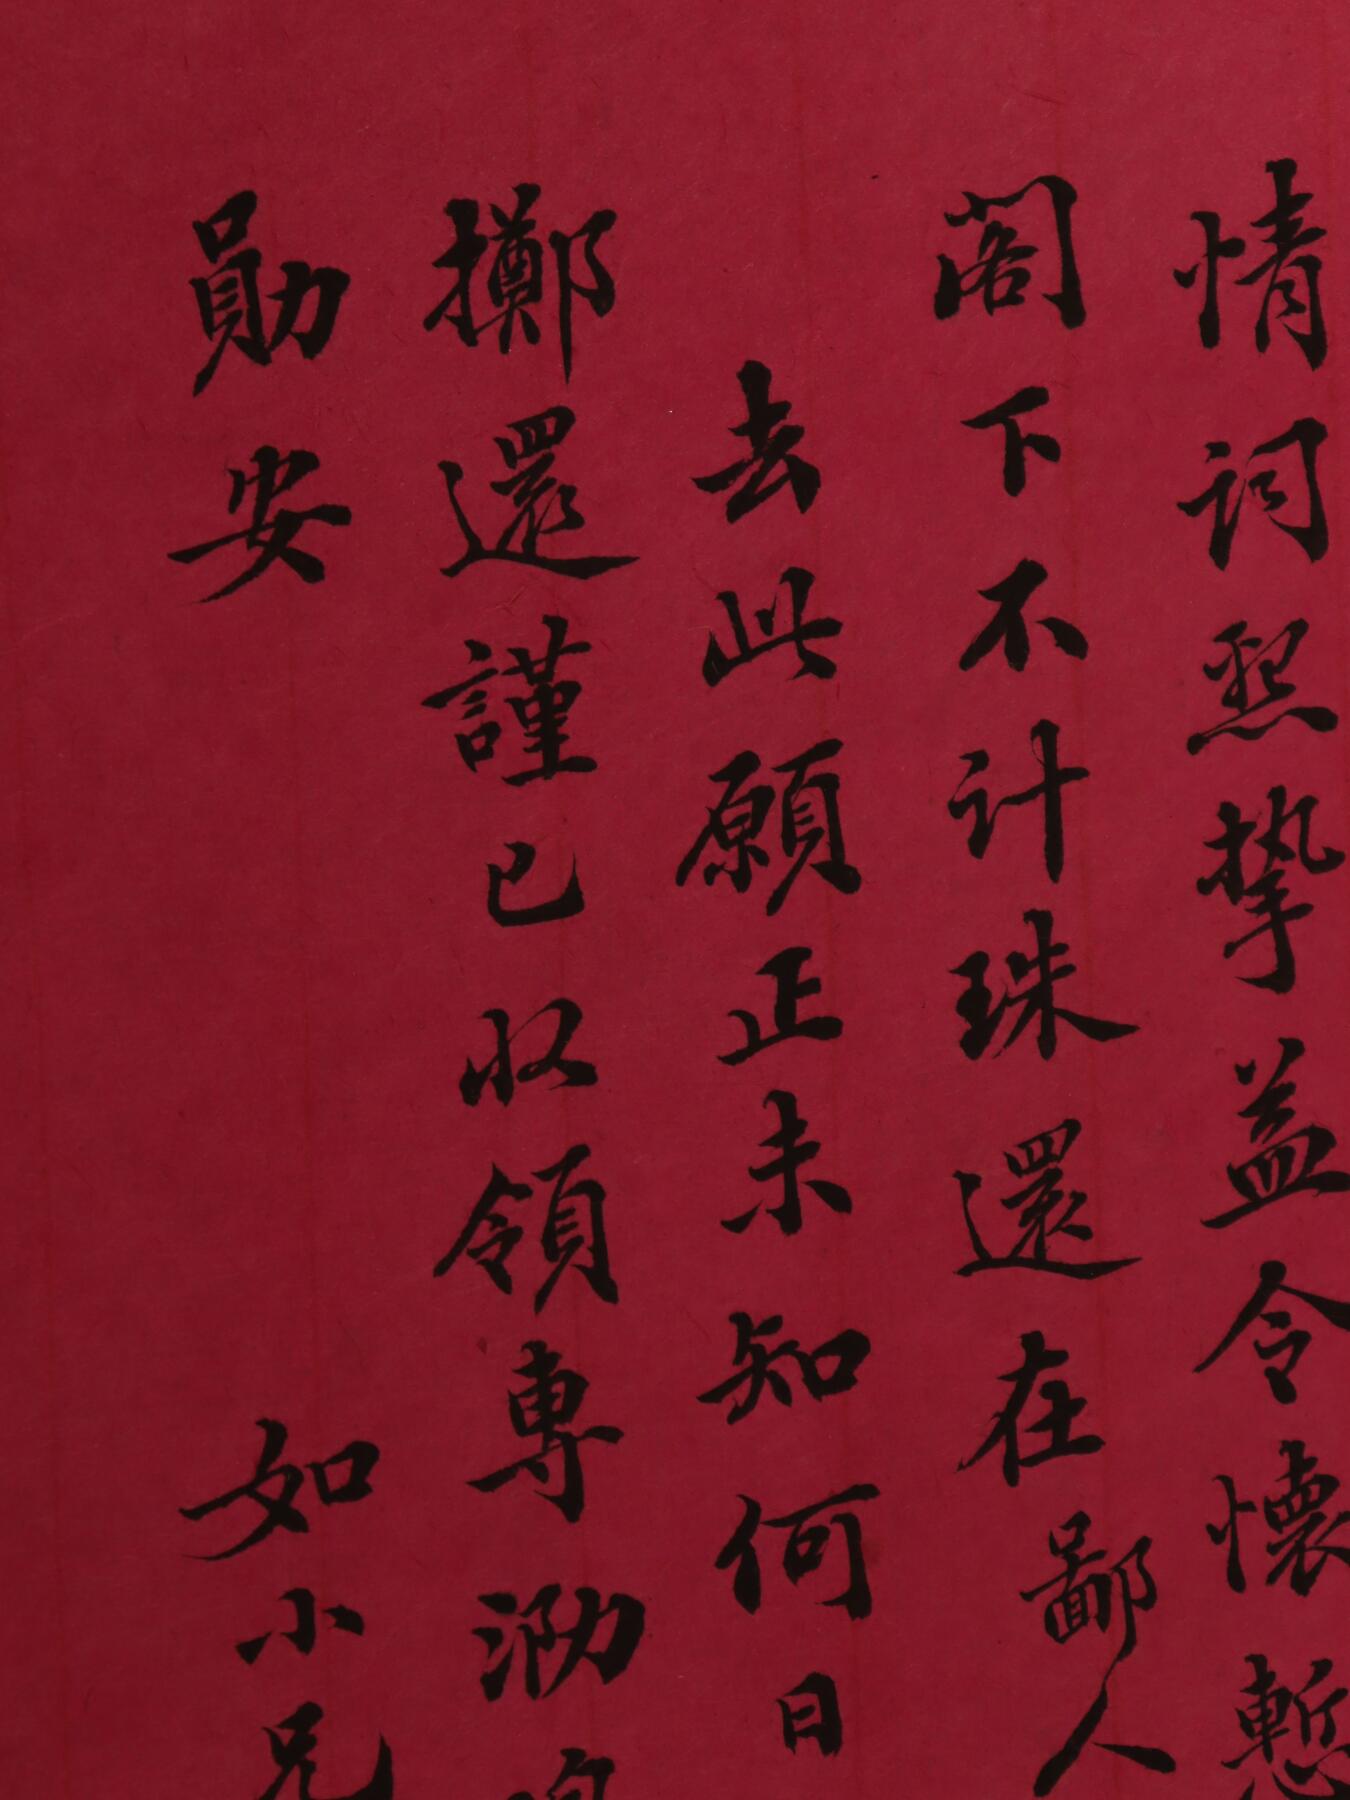 情詞懇摯益令懷慙
閣下不計珠還在鄙人
去此願正未知何日
擲還謹已收領專泐
勛安 如小兄